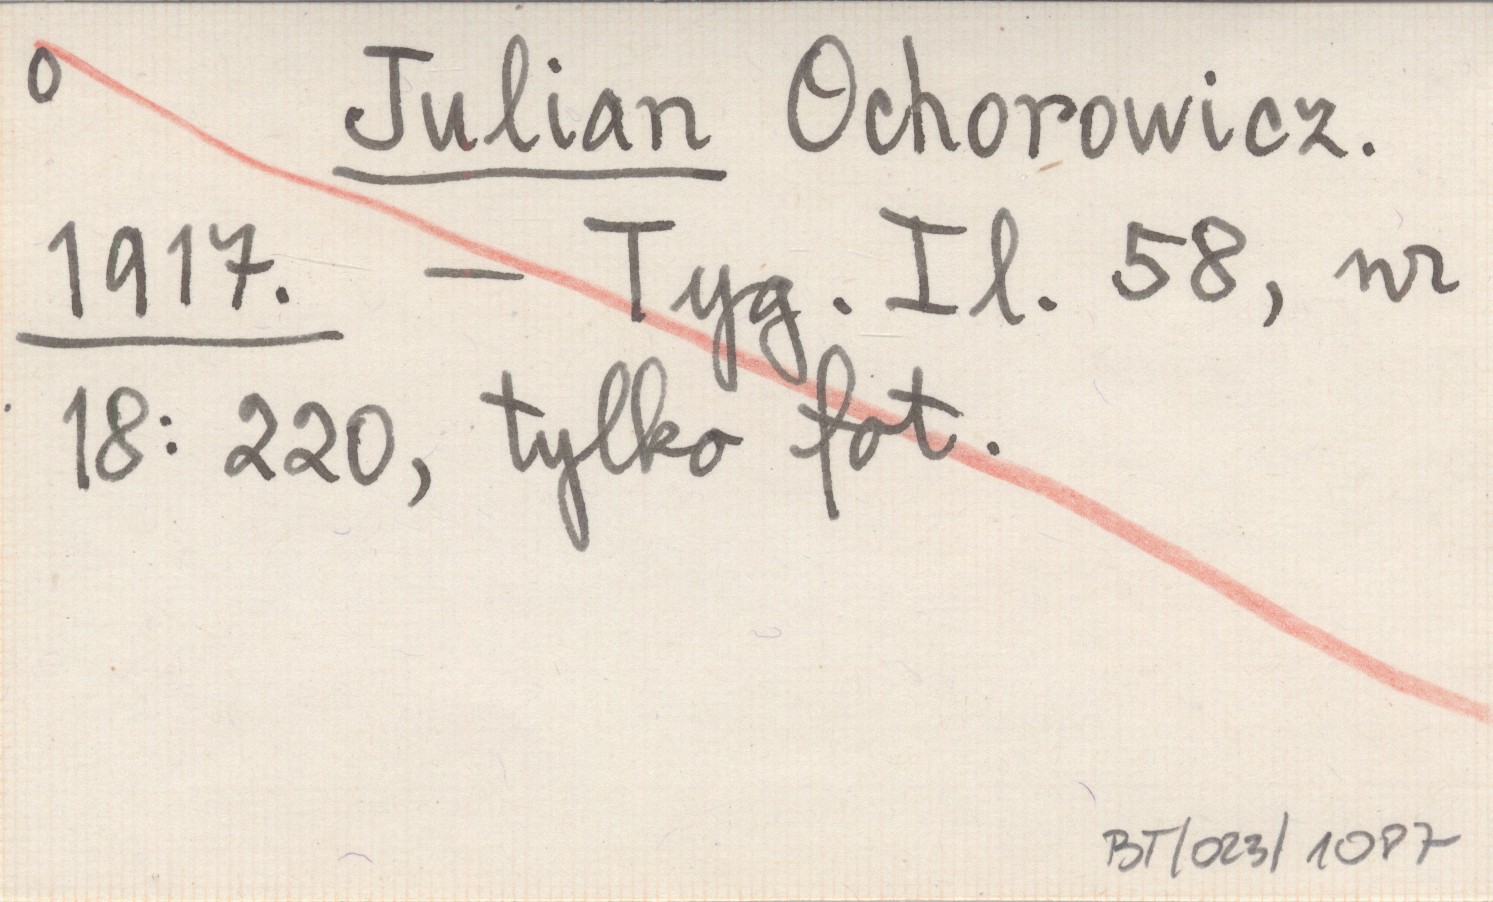 0
Julian Ochorowicz.
1917. — Tyg. Il. 58, nr
18: 220, tylko fot.
BT/023/1087